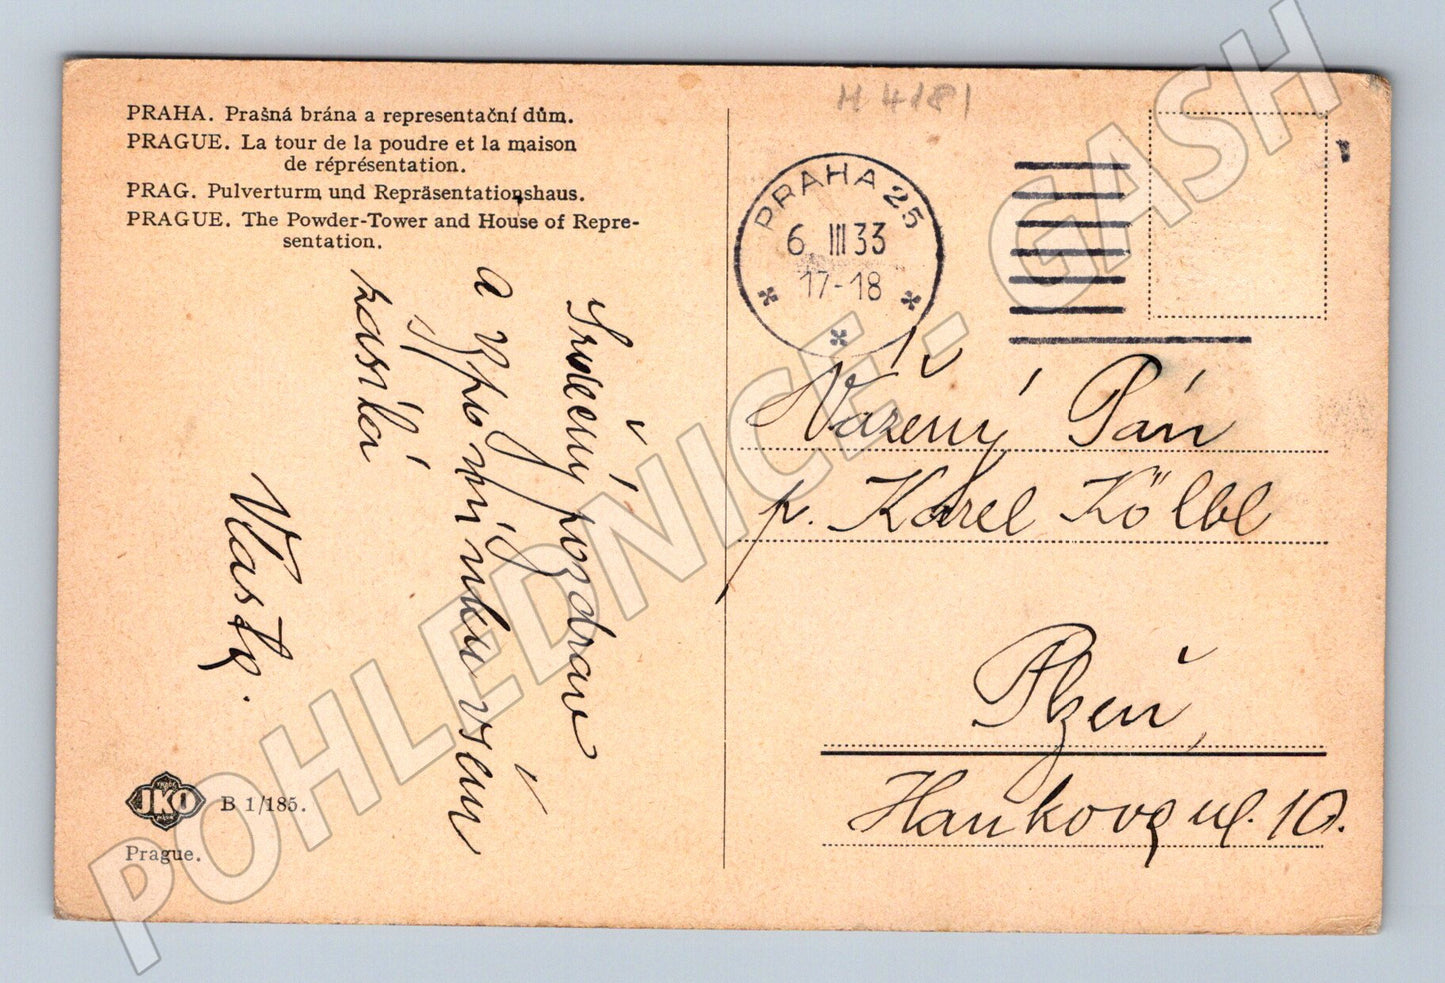 PRAHA. Prašná brána a representační dům.
PRAGUE. La tour de la poudre et la maison
de réprésentation.
PRAG. Pulverturm und Repräsentationshaus.
PRAGUE. The Powder-Tower and House of Repre-
sentation.
H 4181
PRAHA 25
6 III 33
17-18
Srdečný pozdrav
a vzpomínku všem
zasílá
Vlasta.
Vážený Pán
p. Karel Kölbl
Plzeň,
Hankova ul. 10.
JKO
B 1/185.
Prague.
POHLEDNICE - GASH